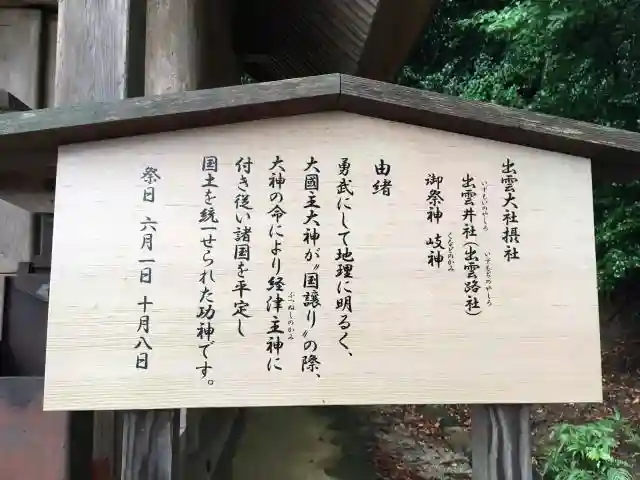 出雲大社摂社
出雲井社(出雲路社)
いずものいのやしろ
いずもぢのやしろ
御祭神 岐神
くなどのかみ
由緒
勇武にして地理に明るく、
大國主大神が〝国譲り〟の際、
大神の命により経津主神に
ふつぬしのかみ
付き従い諸国を平定し
国土を統一せられた功神です。
祭日 六月一日 十月八日